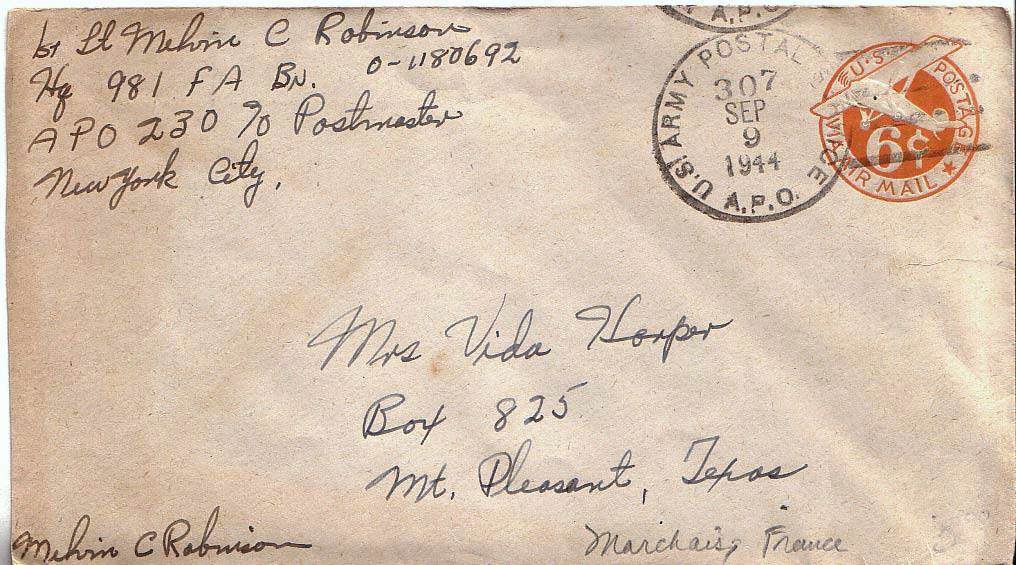 1st Lt Melvin C Robinson
Hq 981 F A Bn. O-1180692
APO 230 % Postmaster
New York City.
A.P.O.
U.S. ARMY POSTAL SERVICE
307
SEP
9
1944
A.P.O.
U.S. POSTAGE
6¢
VIA AIR MAIL
Mrs Vida Harper
Box 825
Mt. Pleasant, Texas
Melvin C Robinson
Marchais, France